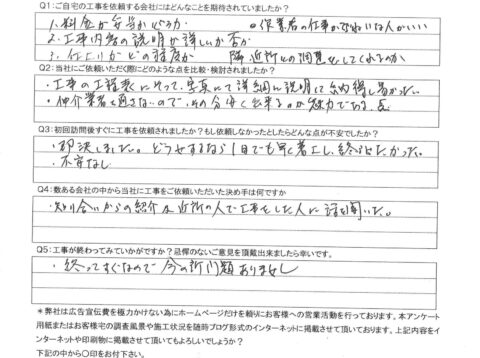 Q1：ご自宅の工事を依頼する会社にはどんなことを期待されていましたか？
1. 料金が妥当かどうか ○作業者の仕事がきれいな人がいい
2. 工事内容の説明が詳しいか否か
3. 仕上りがどの程度か 隣近所との調整をしてくれるのか
Q2：当社にご依頼いただく際にどのような点を比較・検討されましたか？
・工事の工程表にそって、写真にて詳細に説明して納得し易かった。
・仲介業者を通さないので、その分安く出来るのが魅力である
Q3：初回訪問後すぐに工事を依頼されましたか？もし依頼しなかったとしたらどんな点が不安でしたか？
・即決しました。どうせするなら1日でも早く着工し、終らせたかった。
・不安なし
Q4：数ある会社の中から当社に工事をご依頼いただいた決め手は何ですか
・知り合いからの紹介及近所の人で工事をした人に話を聞いた。
Q5：工事が終わってみていかがですか？忌憚のないご意見を頂戴出来ましたら幸いです。
・終ってすぐなので今の所問題ありません
＊弊社は広告宣伝費を極力かけない為にホームページだけを頼りにお客様への営業活動を行っております。本アンケート
用紙またはお客様宅の調査風景や施工状況を随時ブログ形式のインターネットに掲載させて頂いております。上記内容をイ
ンターネットや印刷物に掲載させて頂いてもよろしいでしょうか？
下記の中から〇印をお付下さい。